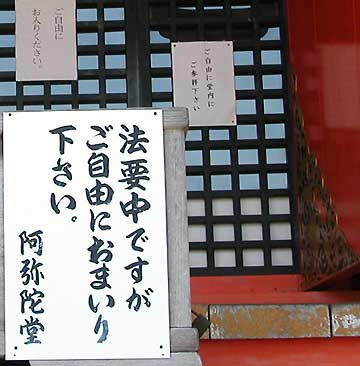 法要中ですが
ご自由におまいり
下さい。
阿弥陀堂
ご自由に堂内に
ご参拝下さい
ご自由に
お入りください。